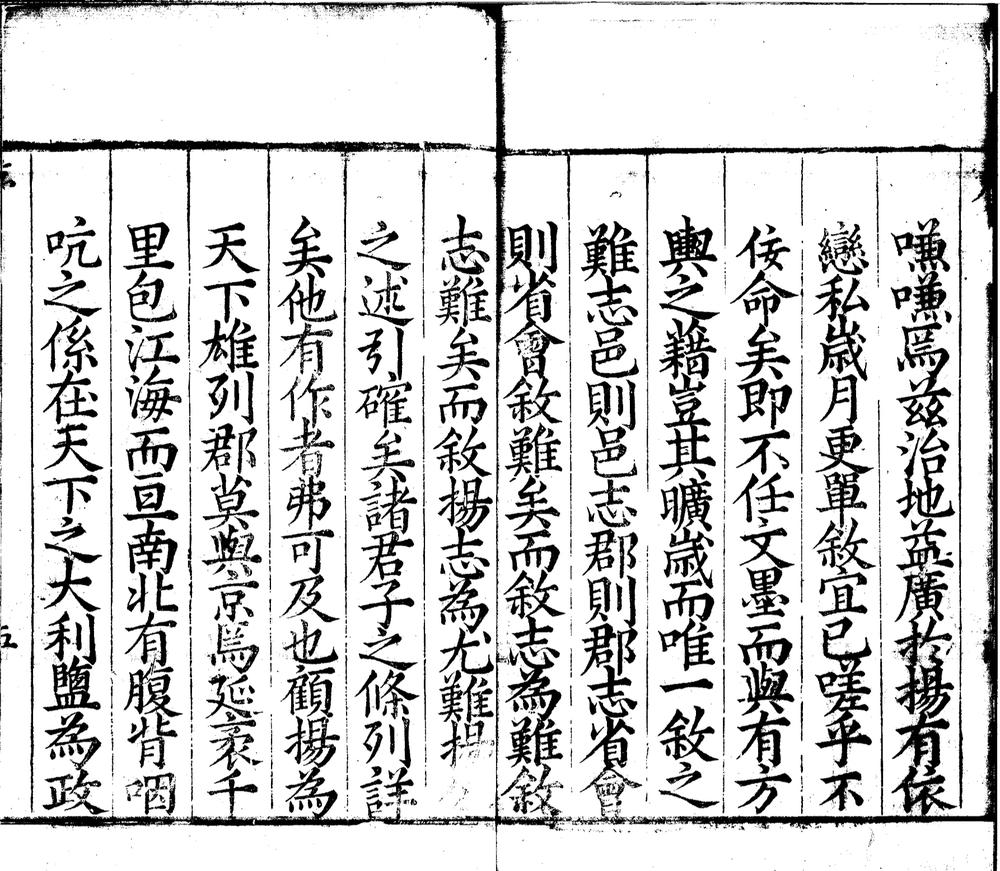 嗛嗛焉兹治地益廣於揚有依
戀私歲月更單敘宜已嗟乎不
佞命矣即不任文墨而與有方
輿之藉豈其曠歲而唯一敘之
難志邑則邑志郡則郡志省會
則省會敘難矣而敘志為難敘
志難矣而敘揚志為尤難揚
之述引確矣諸君子之條列詳
矣他有作者弗可及也顧揚為
天下雄列郡莫與京焉延袤千
里包江海而亘南北有腹背咽
吭之係在天下之大利鹽為政
五